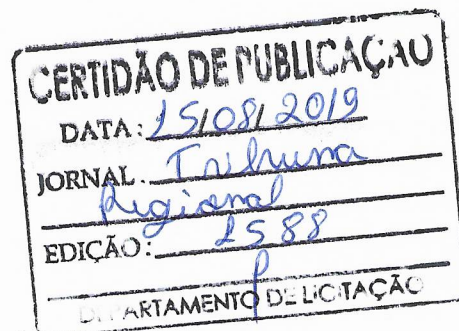 CERTIDÃO DE PUBLICAÇÃO
DATA: 15/08/2019
JORNAL. Tribuna
Regional
EDIÇÃO: 1588
DEPARTAMENTO DE LICITAÇÃO